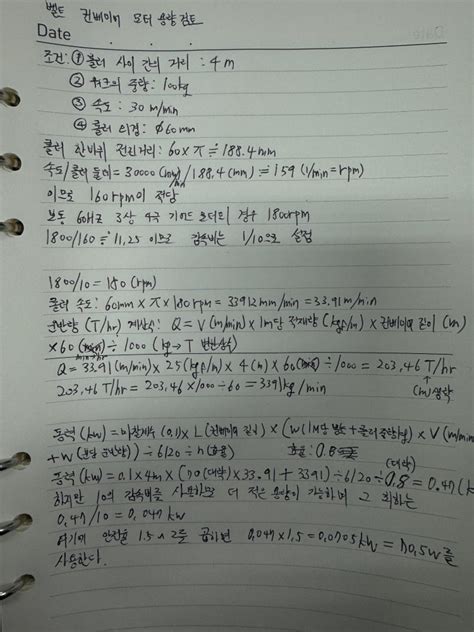 벨트 컨베이어 모터 용량검토
Date
조건: ① 롤러 사이 간의 거리 : 4m
② 워크의 중량: 100kg
③ 속도 : 30 m/min
④ 롤러 외경 : Φ60mm
롤러 한바퀴 전진거리: 60×π≒188.4mm
속도/롤러 둘레=30000(mm/min)/188.4(mm)≒159(1/min=rpm)
이므로 160rpm이 적당
보통 60Hz 3상 4극 기어드 모터의 경우 1800rpm
1800/160≒11.25 이므로 감속비는 1/10으로 설정
1800/10=180(rpm)
롤러 속도: 60mm×π×180rpm=33912mm/min≒33.91m/min
운반량(T/hr) 계산식: Q=V(m/min)×1m당 적재량(kgf/m)×컨베이어 길이(m)
×60 ÷1000(kg→T 변환상수)
Q=33.91(m/min)×25(kgf/m)×4(m)×60 ÷1000=203.46T/hr
203.46T/hr=203.46×1000÷60=3391kg/min
(m)생략
동력(kw)=마찰계수(0.1)×L(컨베이어 길이)×(W(1M당 +롤러중량)kg)×V(m/min)
+W(분당 운반량))÷6120÷η(효율) 효율: 0.8
동력(kw)=0.1×4m×(70(대략)×33.91+3391)÷6120÷0.8(대략)=0.47(k
하지만 10의 감속비를 사용하면 더 적은 용량이 가능하며 그 취하는
0.47/10=0.047kw
여기에 안전율 1.5~2를 곱하면 0.047×1.5=0.0705kw=70.5w를
사용한다.